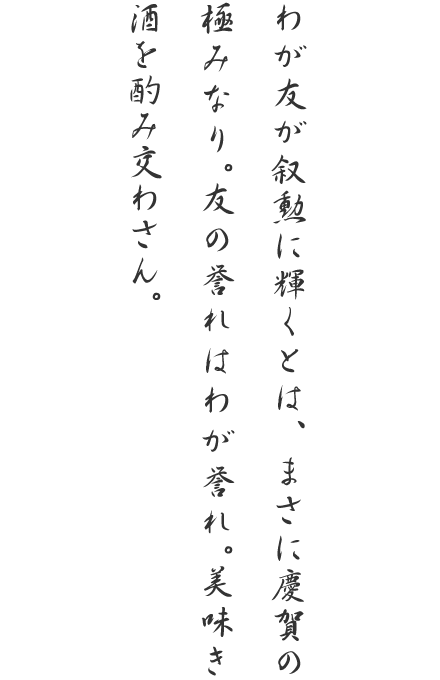 わが友が叙勲に輝くとは、まさに慶賀の
極みなり。友の誉れはわが誉れ。美味き
酒を酌み交わさん。